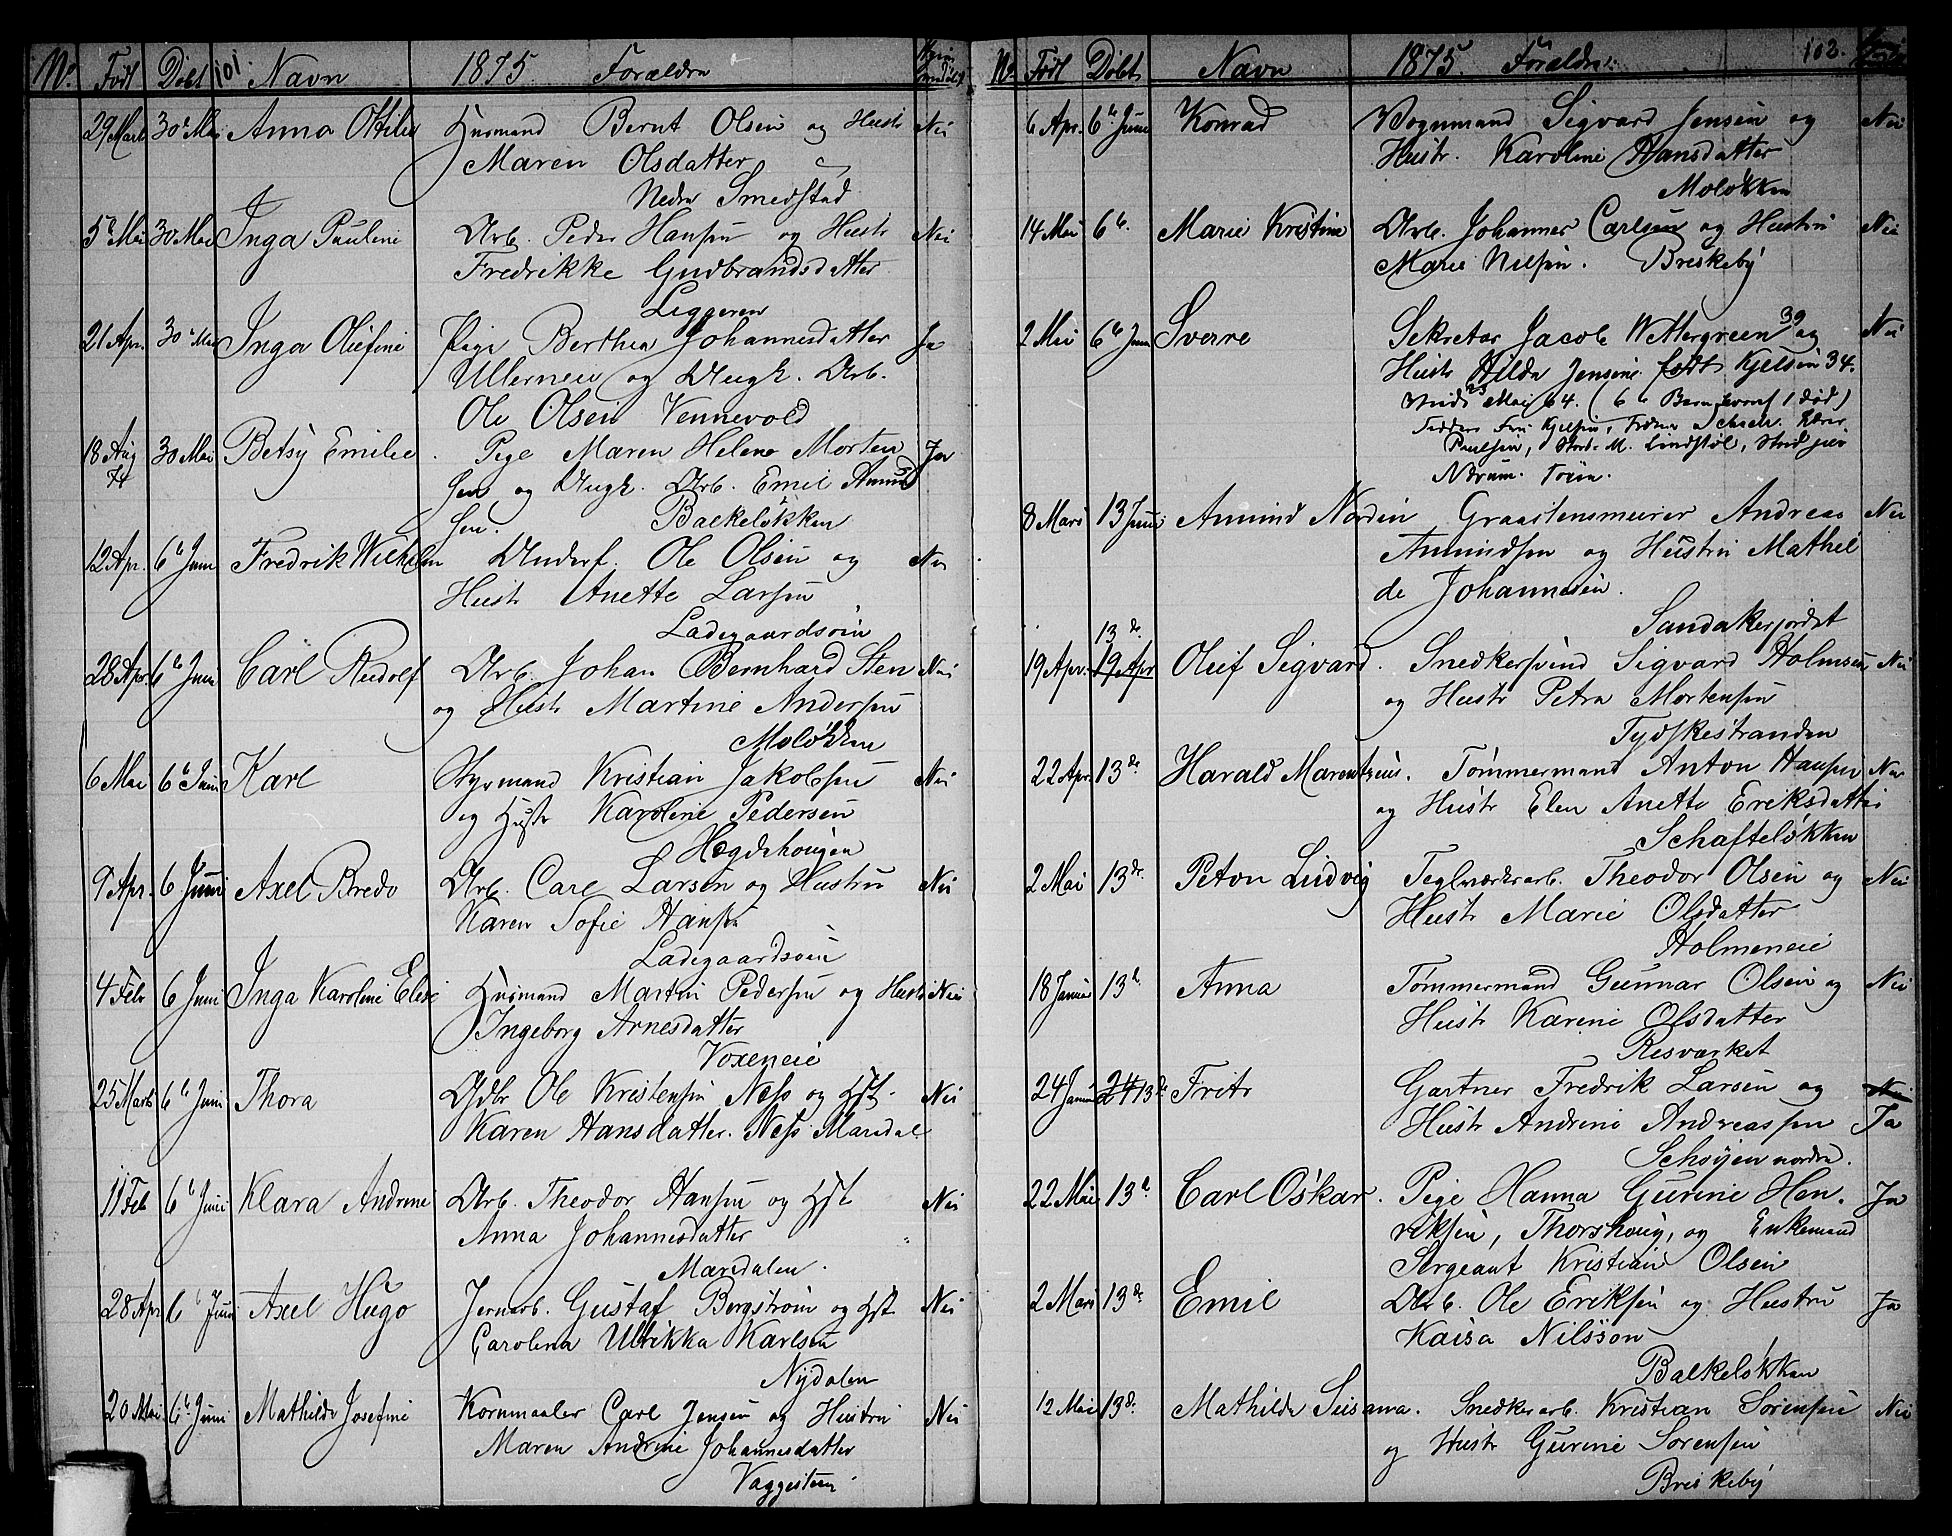 No Født Døbt 101. Navn 1875 Forældre
29 Marts 30te Mai Anna Ottilie Husmand Bernt Olsen og Hustr Nei
Maren Olsdatter
Nedre Smedstad
5te Mai 30 Mai Inga Pauline Arb. Peder Hansen og Hustr Nei
Fredrikke Gudbrandsdatter
Liggeren
21 Apr. 30te Mai Inga Olefine Pige Berthea Johannesdatter Ja
Ullerneie og Ungk. Arb.
Ole Olsen Vennevold
18 Aug 30 Mai Betsy Emilie Pige Maren Helene Morten Ja
74 sen og Ungk. Arb. Emil Amund
sen. Balkeløkken
12 Apr. 6te Juni Fredrik Wilhelm Underf. Ole Olsen og Nei
Hustr Anette Larsen
Ladegaardsøen
28 Apr 6te Juni Carl Rudolf Arb. Johan Bernhard Sten Nei
og Hustr Martine Andersen
Moløkken
6 Mai 6te Juni Karl Styrmand Kristian Jakobsen Nei
og Hustr Karoline Pedersen
Høgdehougen
9 Apr. 6 Juni Axel Bredo Arb. Carl Larsen og Hustru Nei
Karen Sofie Hansen
Ladegaardsøen
4 Febr 6 Juni Inga Karoline Elise Husmand Martin Pedersen og Hustr Nei
Ingeborg Arnesdatter
Voxeneie
25 Marts 6te Juni Thora Gdbr Ole Kristensen Næss og Hst. Nei
Karen Hansdatter. Næss Maridal
11 Feb 6te Juni Klara Andrine Arb. Theodor Hansen og Hst Nei
Anna Johannesdatter
Maridalen.
28 Apr 6te Juni Axel Hugo Jernarb. Gustaf Bergstrøm og Hst Nei
Carolina Ulrikka Karlsen
Nydalen
20 Mai 6te Juni Mathilde Josefine Kornmaaler Carl Jensen og Hustru Nei
Maren Andrine Johannesdatter
Væggesteen
No Født Døbt Navn 1875. Forældre. 102.
6 Apr. 6te Juni Konrad Vognmand Sigvard Jensen og Nei
Hustr. Karoline Hansdatter
Moløkken
14 Mai 6te. Marie Kristine Arb. Johannes Carlsen og Hustru Nei
Marie Nilsen. Briskeby
2 Mai 6te Juni Sverre Sekretær Jacob Wettergreen 39 og Nei
Hustr Hilda Jensine født Kjelsen 34.
23 Mai 64. (6te Barn hvoraf 1 død)
Faddere Fru Kjelsen, Frøken Lærer
Paulsen, Stud. M. Lindstøl, Stud. jur
Nærum.
8 Mars 13 Juni Amund Nordin Graastensmurer Andreas Nei
Amundsen og Hustru Mathil
de Johannesen.
Sandakerjordet
13de.
19 Apr. 19 Apr Oluf Sigvard. Snedkersvend Sigvard Holmsen Nei
og Hustr Petra Mortensen
Tydskestranden
22 Apr 13de Harald Marentzius. Tømmermand Anton Hansen Nei
og Hustr Elen Anette Eriksdatter
Schafteløkken
2 Mai 13de. Petor Ludvig Teglværksarb. Theodor Olsen og Nei
Hustr Marie Olsdatter
Holmeneie
18 Januar 13de Anna Tømmermand Gunnar Olsen og Nei
Hustr Karine Olsdatter
Risværket
24 Januar 24 13de Fritz Gartner Fredrik Larsen og Nei
Hustr Andrine Andreassen Ja
Schøyen nordre.
22 Mai 13de Carl Oskar. Pige Hanna Gurine Hen. Ja
riksen, Thorshoug, og Enkemand
Sergeant Kristian Olsen
2 Mars 13de Emil Arb. Ole Eriksen og Hustru Ja
Kaisa Nilsson
Balkeløkken
12 Mai 13de. Mathilde Susanna. Snedkerarb. Kristian Sørensen Nei
og Hustr Gurine Sørensen
Briskeby